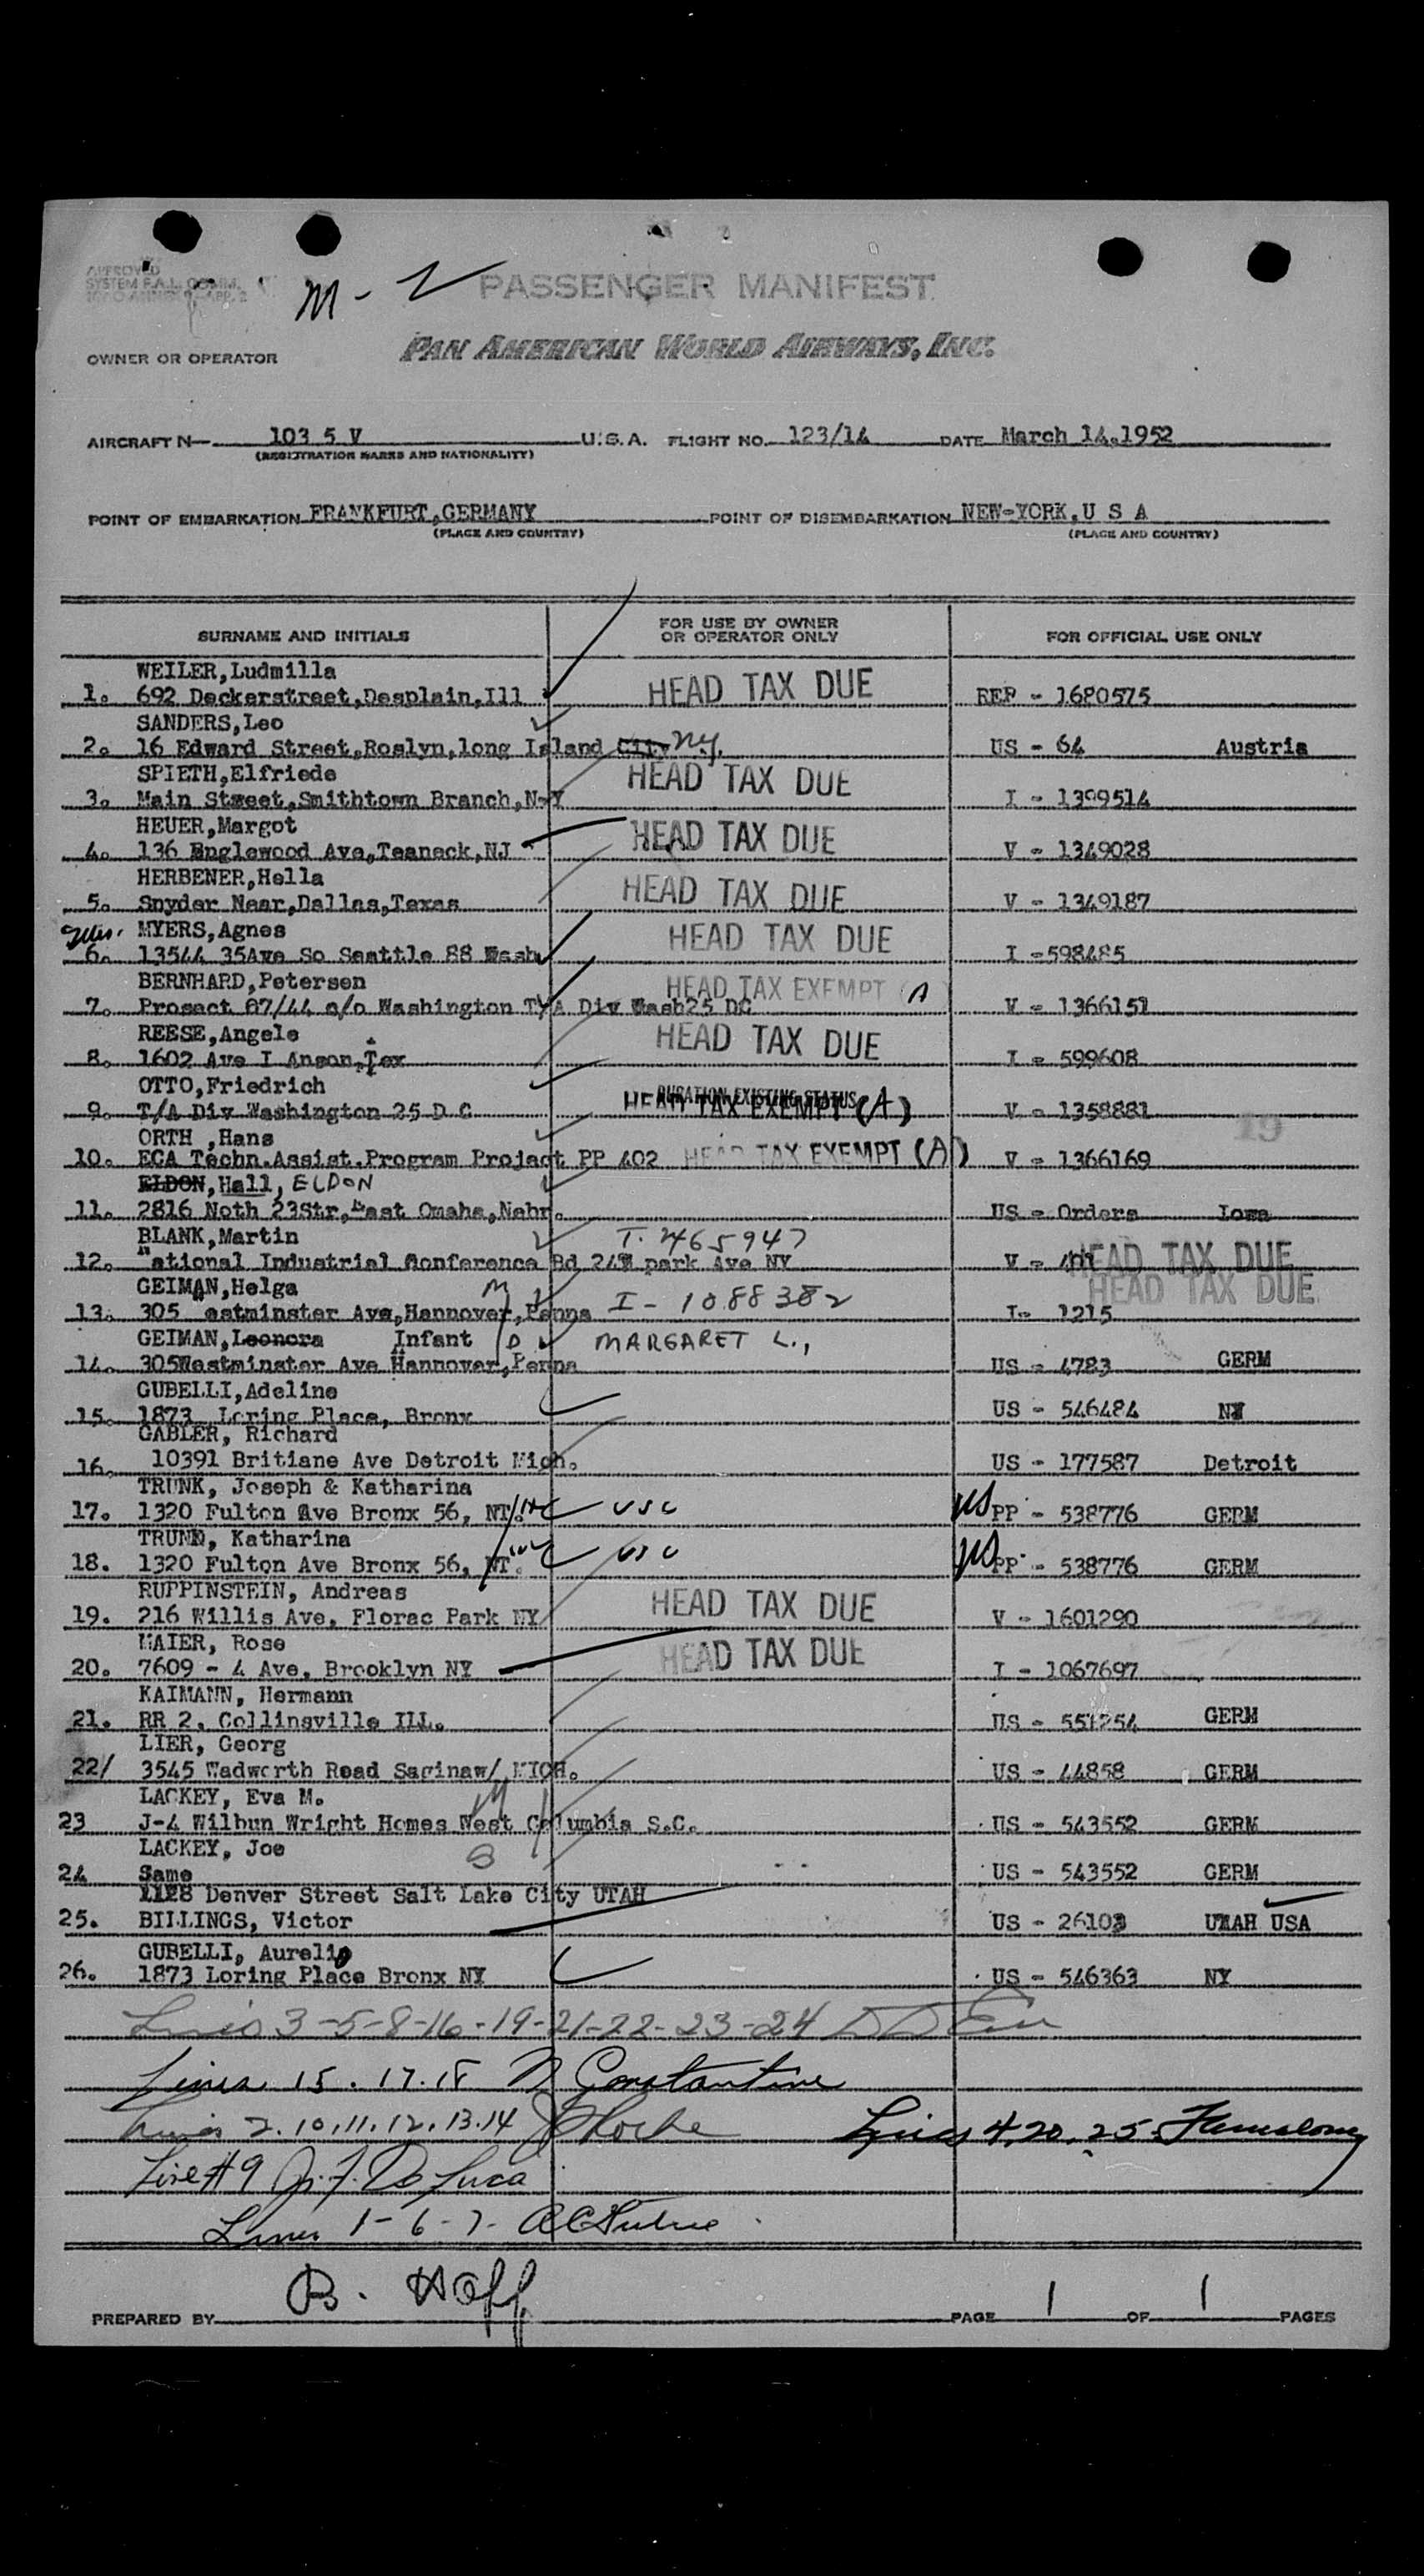 APPROVED
SYSTEM F.A.L. COMM.
M-2
PASSENGER MANIFEST
OWNER OR OPERATOR PAN AMERICAN WORLD AIRWAYS, INC.
AIRCRAFT N— 103 5 V U.S.A. FLIGHT NO. 123/14 DATE March 14.1952
(REGISTRATION MARKS AND NATIONALITY)
POINT OF EMBARKATION FRANKFURT,GERMANY POINT OF DISEMBARKATION NEW-YORK,U S A
(PLACE AND COUNTRY) (PLACE AND COUNTRY)
SURNAME AND INITIALS FOR USE BY OWNER OR OPERATOR ONLY FOR OFFICIAL USE ONLY
WEILER,Ludmilla
1. 692 Deckerstreet,Desplain,Ill HEAD TAX DUE REP - 1680575
SANDERS,Leo
2. 16 Edward Street,Roslyn,long Island City NY. US - 64 Austria
SPIETH,Elfriede
3. Main Street,Smithtown Branch,N-Y HEAD TAX DUE I - 1399514
HEUER,Margot
4. 136 Englewood Ave,Teaneck,NJ HEAD TAX DUE V - 1349028
HERBENER,Hella
5. Snyder Near,Dallas,Texas HEAD TAX DUE V - 1349187
MYERS,Agnes
6. 13544 35Ave So Seattle 88 Wash HEAD TAX DUE I -598485
BERNHARD,Petersen
7. Prosect 07/44 c/o Washington T/A Div Wash25 DC HEAD TAX EXEMPT (A) V - 1366151
REESE,Angele
8. 1602 Ave I Anson,Tex HEAD TAX DUE I - 599608
OTTO,Friedrich
9. T/A Div Washington 25 D C DURATION EXISTING STATUS HEAD TAX EXEMPT (A) V - 1358881
19
ORTH ,Hans
10. ECA Techn.Assist.Program Project PP 402 HEAD TAX EXEMPT (A) V - 1366169
ELDON,Hall, ELDON
11. 2816 Noth 23Str,East Omaha,Nebr. US - Orders Iowa
BLANK,Martin T. 465947
12. National Industrial Conference Bd 247 park Ave NY V - 401 HEAD TAX DUE
GEIMAN,Helga M HEAD TAX DUE
13. 305 estminster Ave,Hannover,Penna I - 1088382 I- 1215
GEIMAN,Leonora Infant D MARGARET L.,
14. 305Westminster Ave Hannover,Penna US - 4783 GERM
GUBELLI,Adeline
15. 1873 Loring Place, Bronx US - 546484 NY
GABLER, Richard
16. 10391 Britiane Ave Detroit Mich. US - 177587 Detroit
TRUNK, Joseph & Katharina
17. 1320 Fulton Ave Bronx 56, NT. USC US PP - 538776 GERM
TRUNK, Katharina
18. 1320 Fulton Ave Bronx 56, NT. USC US PP - 538776 GERM
RUPPINSTEIN, Andreas
19. 216 Willis Ave, Florac Park NY HEAD TAX DUE V - 1601290
MAIER, Rose
20. 7609 - 4 Ave, Brooklyn NY HEAD TAX DUE I - 1067697
KAIMANN, Hermann
21. RR 2, Collinsville ILL. US - 551254 GERM
LIER, Georg
22/ 3545 Wadworth Road Saginaw/ MICH. US - 44858 GERM
LACKEY, Eva M. M
23 J-4 Wilbun Wright Homes West Columbia S.C. US - 543552 GERM
LACKEY, Joe S
24 Same US - 543552 GERM
1128 Denver Street Salt Lake City UTAH
25. BILLINGS, Victor US - 26103 UTAH USA
GUBELLI, Aurelio
26. 1873 Loring Place Bronx NY US - 546363 NY
Lines 3-5-8-16-19-21-22-23-24
Lines 15.17.18 N Constantine
Lines 2.10.11.12.13.14 Lines 4,20,25
Line #9 De Luca
Lines 1-6-7-
PREPARED BY B. Hoff PAGE 1 OF 1 PAGES